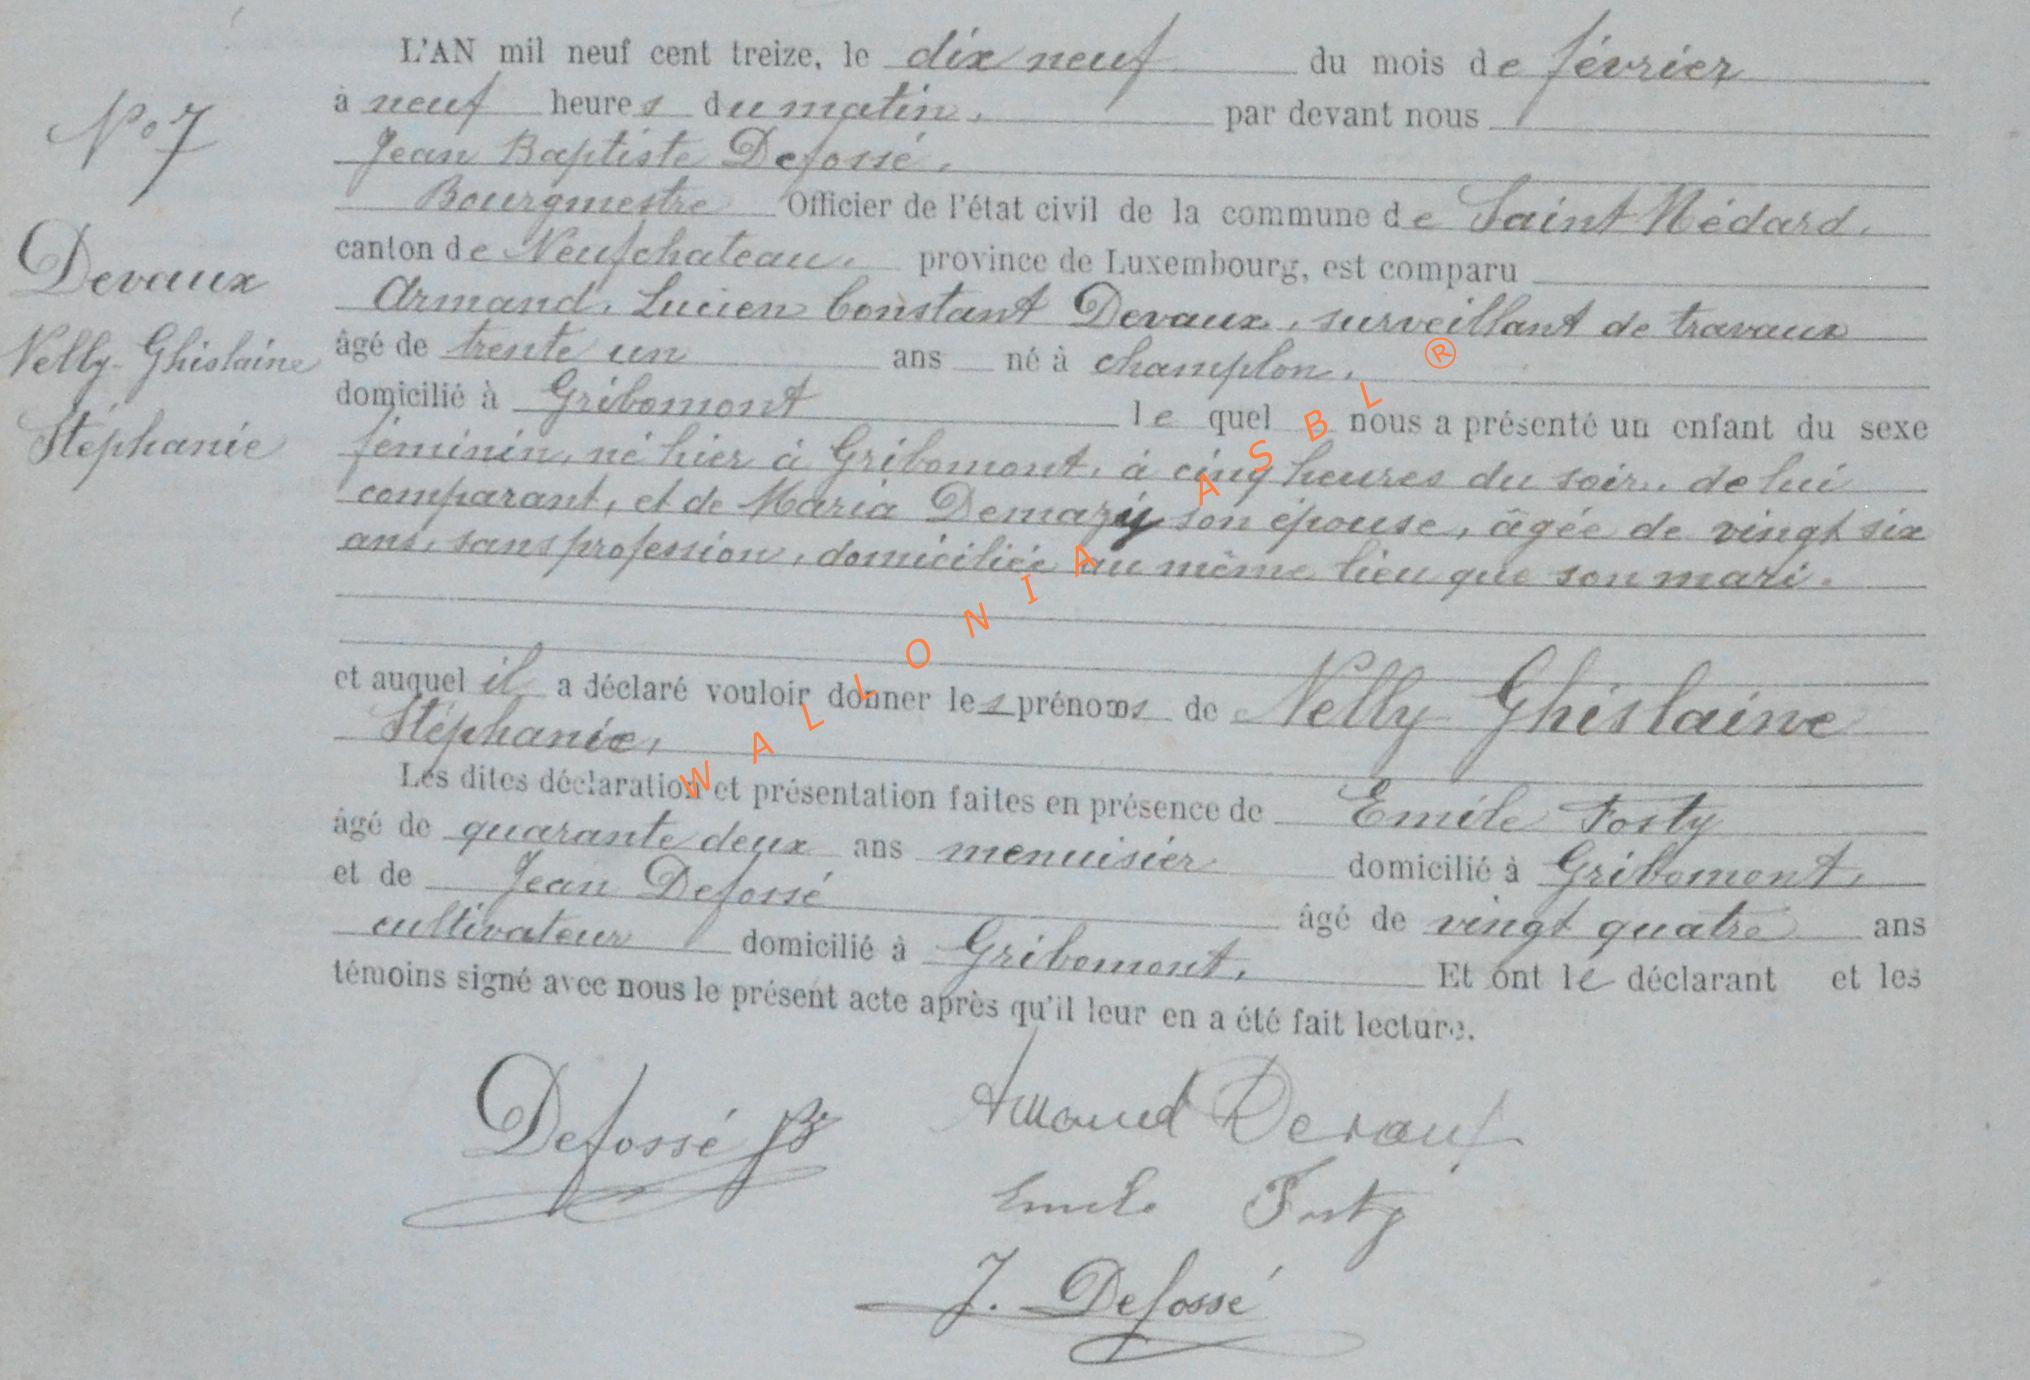 L'AN mil neuf cent treize, le dix neuf du mois de février
N° 7
à neuf heures du matin, par devant nous
Jean Baptiste Defossé,
Bourgmestre Officier de l'état civil de la commune de Saint Médard,
Devaux
canton de Neufchateau, province de Luxembourg, est comparu
Armand, Lucien Constant Devaux, surveillant de travaux
Nelly Ghislaine
âgé de trente un ans né à champlon,
domicilié à Gribomont le quel nous a présenté un enfant du sexe
Stéphanie
féminin, né hier à Gribomont, à cinq heures du soir, de lui
comparant, et de Maria Demazy son épouse, âgée de vingt six
ans, sans profession, domiciliée au même lieu que son mari.
et auquel il a déclaré vouloir donner les prénoms de Nelly Ghislaine
Stéphanie,
Les dites déclaration et présentation faites en présence de Emile Fosty
âgé de quarante deux ans menuisier domicilié à Gribomont,
et de Jean Defossé âgé de vingt quatre ans
cultivateur domicilié à Gribomont, Et ont le déclarant et les
témoins signé avec nous le présent acte après qu'il leur en a été fait lecture.
Defossé JB
Armand Devaux
Emile Fosty
J. Defossé
WALLONIA ASBL ®